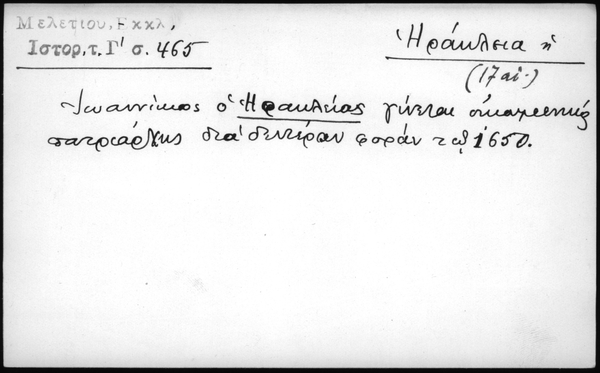 Μελετίου, Εκκλ.
Ιστορ, τ. Γ' σ. 465
Ἡράκλεια ἡ
(17 αἰ.)
Ἰωαννίκιος ὁ Ἡρακλείας γίνεται οἰκουμενικός
πατριάρχης διὰ δευτέραν φορὰν τῷ 1650.